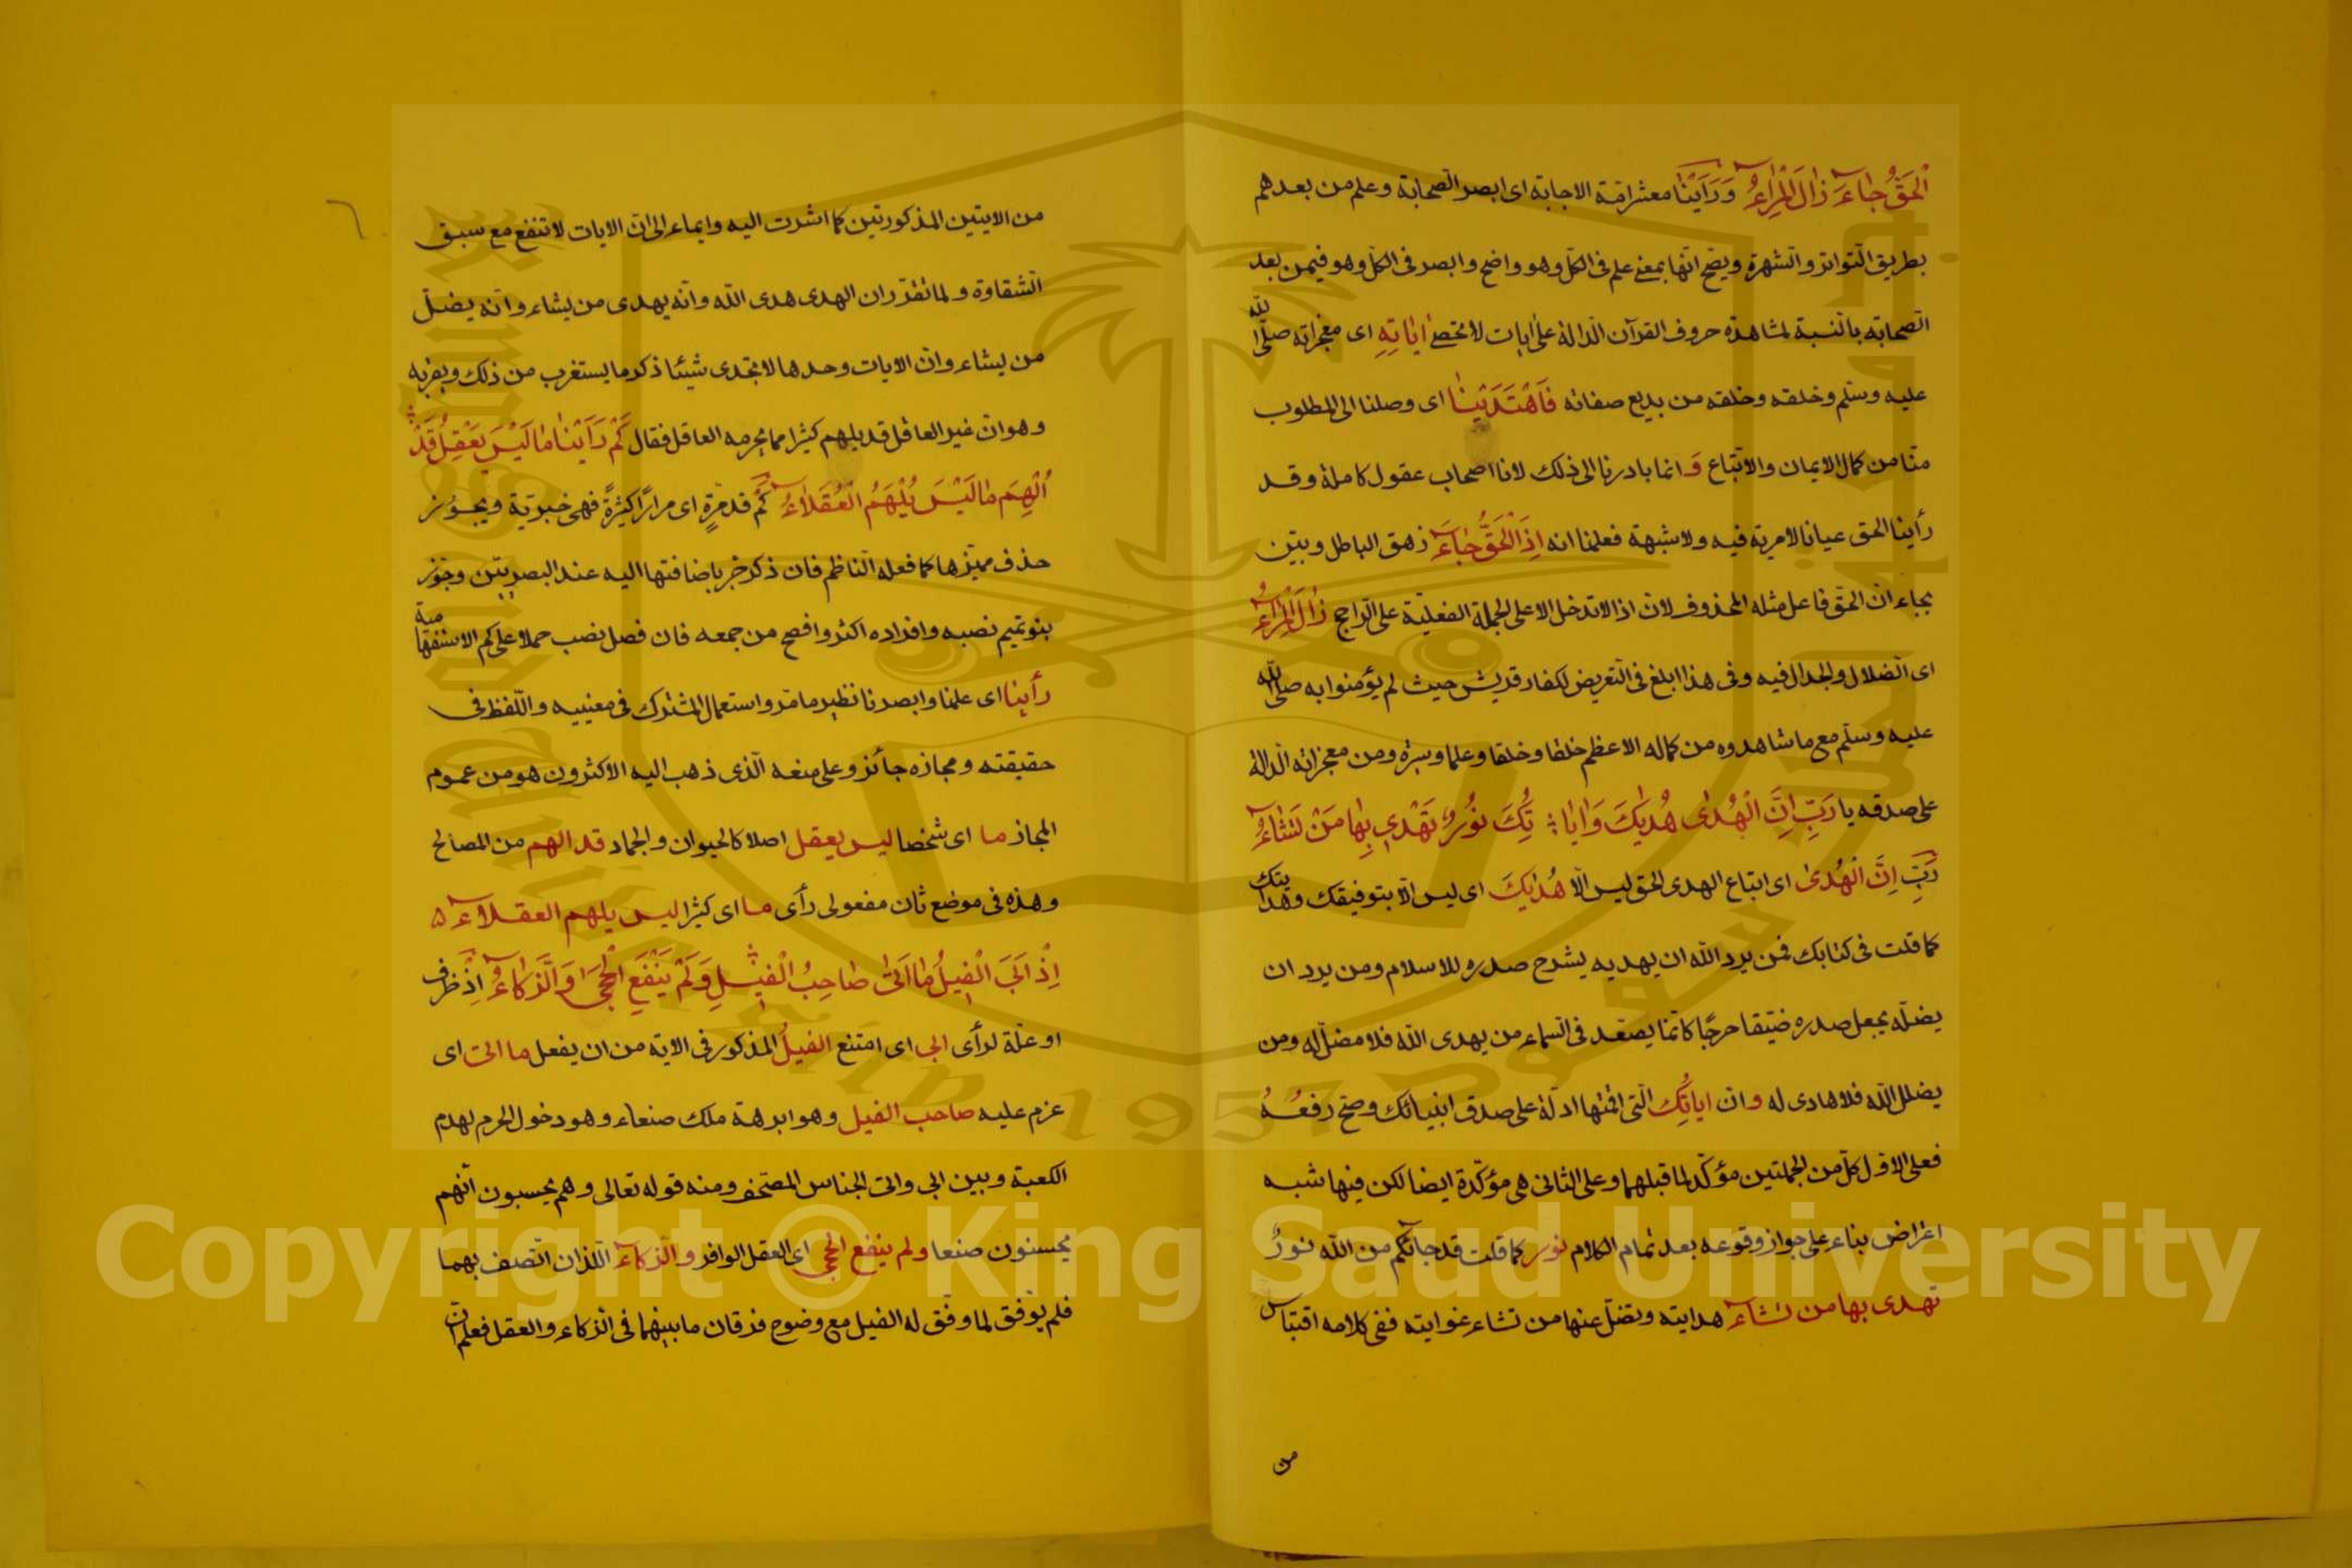 الْحَقُّ جَاءَ زَالَ الْمِرَاءُ وَرَأَيْنَا معشر امّة الاجابة اى ابصر الصّحابة وعلم من بعدهم
بطريق التّواتر والشهرة ويصحّ انّها بمعنى علم فى الكلّ وهو واضح وابصر فى الكلّ وهو فيمن بعد
الصّحابة بالنّسبة لمشاهدة حروف القرآن الدّالة على ايات لا تحصى اٰيَاتِهِ اى معجزاته صلّى اللّٰه
عليه وسلّم وخلقه وخلقه من بديع صفاته فَاهْتَدَيْنَا اى وصلنا الى المطلوب
منّا من كمال الايمان والاتّباع وَ انما بادرنا الى ذلك لانا اصحاب عقول كاملة وقد
رأينا الحق عيانا لا مرية فيه ولا شبهة فعلمنا انه اِذَا الْحَقُّ جَاءَ زهق الباطل وبتبين
بجاء ان الحقّ فاعل مثله المحذوف لان اذا لا تدخل الا على الجملة الفعليّة على الرّاجح زَالَ الْمِرَاءُ
اى الضلال والجدال فيه وفى هذا ابلغ فى التّعريض لكفار قريش حيث لم يؤمنوا به صلّى اللّٰه
عليه وسلّم مع ما شاهدوه من كماله الاعظم خلقا وخلقا وعلما وسيرة ومن معجزاته الدّالة
على صدقه يا رَبِّ اِنَّ الْهُدٰى هُدٰيكَ وَاٰيَا ؛ تُكَ نُوْرٌ تَهْدِى بِهَا مَنْ تَشَاءُ
رَبِّ اِنَّ الْهُدٰى اى اتباع الهدى الحق ليس الّا هُدٰيكَ اى ليس الّا بتوفيقك وهدايتك
كما قلت فى كتابك فمن يرد اللّٰه ان يهديه يشرح صدره للاسلام ومن يرد ان
يضلّه يجعل صدره ضيّقا حرجًا كانّما يصعّد فى السّماء من يهدى اللّٰه فلا مضلّ له ومن
يضلل اللّٰه فلا هادى له وان اياتُكَ الّتى اقمتها ادلّة على صدق انبيائك وصحّ رفعُهُ
فعلى الاوّل كلّ من الجملتين مؤكّد لما قبلهما وعلى الثانى هى مؤكّدة ايضا لكن فيها شبه
اعتراض بناء على جواز وقوعه بعد تمام الكلام نور كما قلت قد جاءكم من اللّٰه نورٌ
تهدى بها من تشاء هدايته وتضلّ عنها من تشاء غوايته ففى كلامه اقتباس
من
من الايتين المذكورتين كما اشرت اليه وايماء الى انّ الايات لا تنفع مع سبق
الشقاوة ولما تقرّر ان الهدى هدى اللّٰه وانّه يهدى من يشاء وانّه يضلّ
من يشاء وانّ الايات وحدها لا تجدى شيئا ذكر ما يستغرب من ذلك ويقرّبه
وهو انّ غير العاقل قد يلهم كثيرا مما يحرمه العاقل فقال كَمْ رَاَيْنَا مَا لَيْسَ يَعْقِلُ قَدْ
اُلْهِمَ مَا لَيْسَ يُلْهَمُ الْعُقَلَاءُ كَمْ قد مرّةٍ اى مرارًا كثيرةً فهى خبريّة ويجوز
حذف مميّزها كما فعله النّاظم فان ذكر جرّ باضافتها اليه عند البصريّين وجوّز
بنو تميم نصبه وافراده اكثر وافصح من جمعه فان فصل نصب حملا على كم الاستفهامية
رأينا اى علمنا وابصرنا نظير ما مرّ واستعمال المشترك فى معنييه واللّفظ فى
حقيقته ومجازه جائز وعلى منعه الّذى ذهب اليه الاكثرون هو من عموم
المجاز ما اى شخصا ليس يعقل اصلا كالحيوان والجماد قد الهم من المصالح
وهذه فى موضع ثان مفعولى رأى ما اى كثيرا ليس يلهم العقلاء ۵
اِذْ اَبَى الْفِيلُ مَا اَتٰى صَاحِبُ الْفِيْلِ وَلَمْ يَنْفَعِ الْحِجَا وَالذَّكَاءُ اِذْ ظرف
او علّة لرأى ابى اى امتنع الفيلُ المذكور فى الاية من ان يفعل ما اتى اى
عزم عليه صاحب الفيل وهو ابرهة ملك صنعاء وهو دخول الحرم لهدم
الكعبة وبين ابى واتى الجناس المصحّف ومنه قوله تعالى وهم يحسبون انّهم
يحسنون صنعا ولم ينفع الحجى اى العقل الوافر والذّكاء اللّذان اتّصف بهما
فلم يوفّق لما وفّق له الفيل مع وضوح فرقان ما بينهما فى الذّكاء والعقل فعلم انّ
Copyright © King Saud University
1957